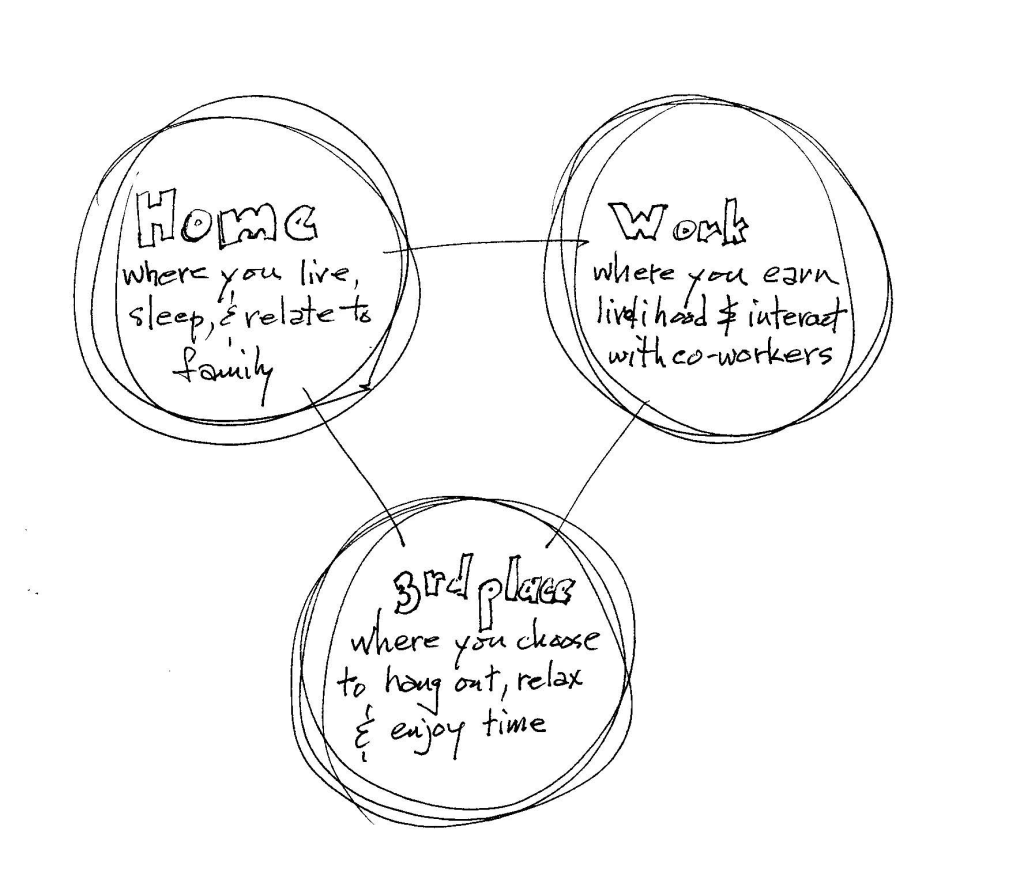 Home
where you live,
sleep, & relate to
family
Work
where you earn
livelihood & interact
with co-workers
3rd place
where you choose
to hang out, relax
& enjoy time